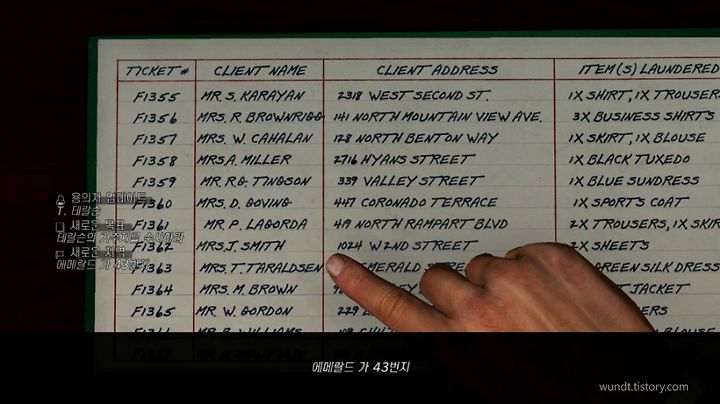 TICKET # CLIENT NAME CLIENT ADDRESS ITEM(S) LAUNDERED
F1355 MR. S. KARAYAN 2318 WEST SECOND ST. 1X SHIRT, 1X TROUSERS
F1356 MRS. R. BROWNRIGG 141 NORTH MOUNTAIN VIEW AVE. 3X BUSINESS SHIRTS
F1357 MRS. W. CAHALAN 128 NORTH BENTON WAY 1X SKIRT, 1X BLOUSE
F1358 MRS A. MILLER 2716 HYANS STREET 1X BLACK TUXEDO
F1359 MR. R.G. TINGSON 339 VALLEY STREET 1X BLUE SUNDRESS
용의자 업데이트
F1360 MRS. D. GOVING 447 CORONADO TERRACE 1X SPORT'S COAT
T. 테랄슨
F1361 MR. P. LAGORDA 419 NORTH RAMPART BLVD 2X TROUSERS, 1X SKIR
새로운 목표
테랄슨의 거주지를 수사하라
F1362 MRS. J. SMITH 1024 W 2ND STREET 2X SHEETS
새로운 지역
에메랄드 가 43번지
F1363 MRS. T. TARALDSEN EMERALD GREEN SILK DRESS
F1364 MRS. M. BROWN JACKET
F1365 MR. W. GORDON 229
WILLIAMS BLOUSE
에메랄드 가 43번지
wundt.tistory.com